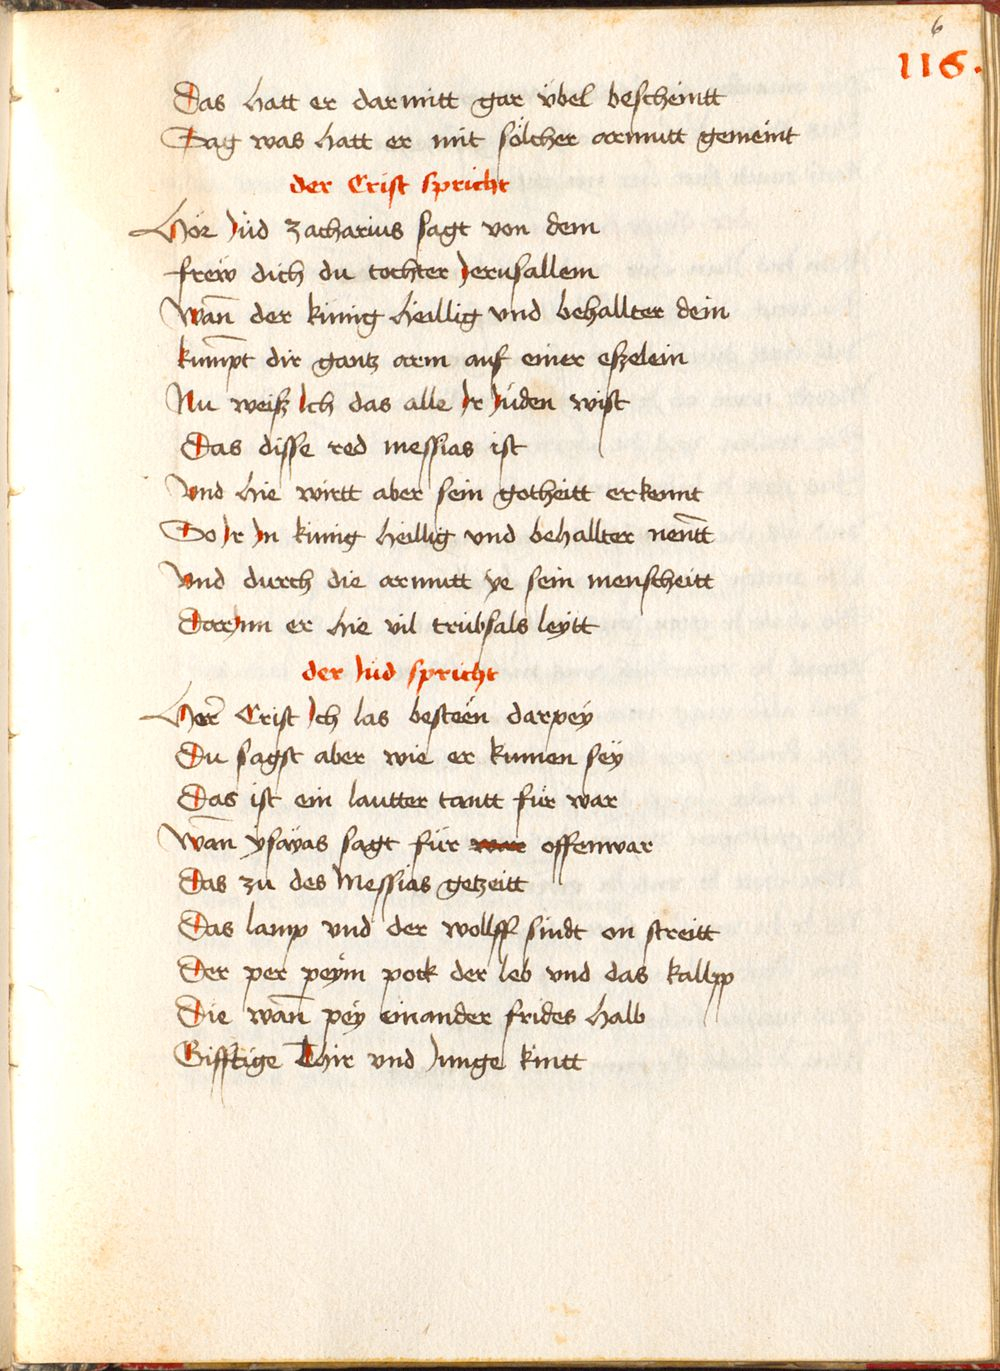 6
116.
Das hatt er darmitt gar übel bescheintt
Sag was hatt er mit sölcher armutt gemeint
der Crist spricht
Hör Jüd zacharius sagt von dem
frew dich du tochter Jerusallem
Wan̄ der künig heillig vnd behallter dein
kumpt dir gantz arm auf einer eszelein
Nu weisz Ich das alle Ir Jüden wist
Das disse red messias ist
Vnd hie wirtt aber sein gotheitt erkennt
So Ir In künig heillig vnd behallter nen̄tt
Vnd durch die armutt ye sein menscheitt
Darjnn er hie vil trübsals leÿtt
der Jüd spricht
Herr Crist Ich las besteen darpey
Du sagst aber wie er kumen seÿ
Das ist ein lautter tantt für war
Wan̄ ysaÿas sagt für war offenwar
Das zu des Messias getzeitt
Das lamp vnd der wollff sindt on streitt
Der per peÿm pock der leb vnd das kallpp
Die wan̄ pey einander frides halb
Gifftige Thir vnd Junge kintt